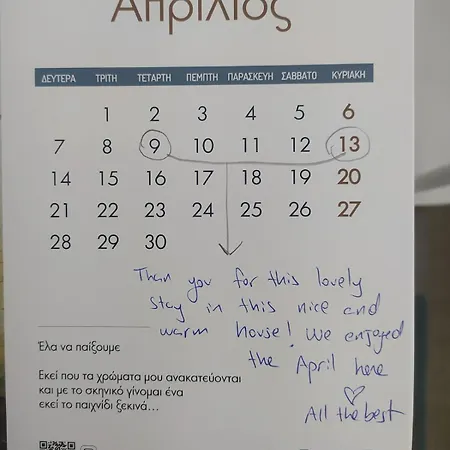 Απρίλιος
ΔΕΥΤΕΡΑ ΤΡΙΤΗ ΤΕΤΑΡΤΗ ΠΕΜΠΤΗ ΠΑΡΑΣΚΕΥΗ ΣΑΒΒΑΤΟ ΚΥΡΙΑΚΗ
1 2 3 4 5 6
7 8 9 10 11 12 13
14 15 16 17 18 19 20
21 22 23 24 25 26 27
28 29 30
Than you for this lovely
stay in this nice and
warm house! We enjoyed
the April here
All the best
Έλα να παίξουμε
Εκεί που τα χρώματα μου ανακατεύονται
και με το σκηνικό γίνομαι ένα
εκεί το παιχνίδι ξεκινά...